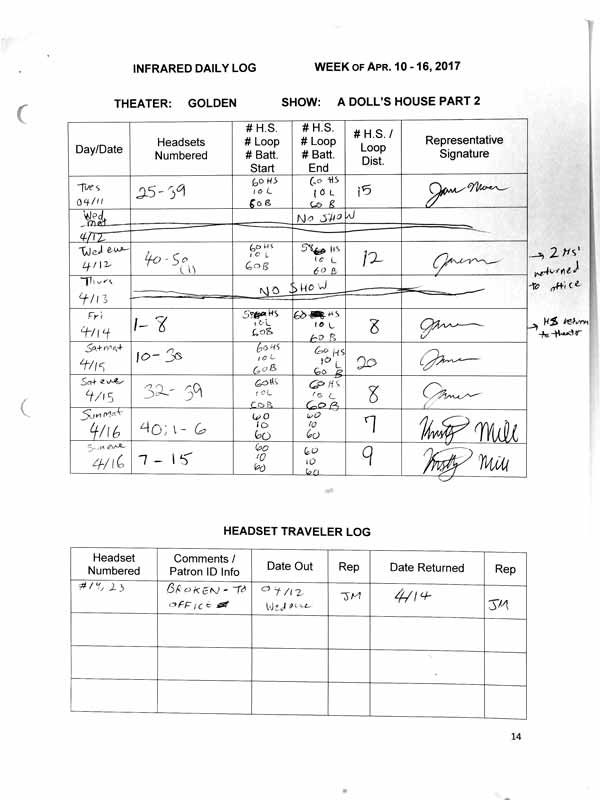 INFRARED DAILY LOG WEEK OF APR. 10 - 16, 2017
THEATER: GOLDEN SHOW: A DOLL'S HOUSE PART 2
Day/Date Headsets Numbered # H.S. # Loop # Batt. Start # H.S. # Loop # Batt. End # H.S. / Loop Dist. Representative Signature
Tues 04/11 25-39 60HS 10L 60B 60 HS 10L 60B 15
Wed mat 4/12 NO SHOW
Wed eve 4/12 40-50 (1) 60HS 10L 60B 58 HS 10L 60B 12 → 2 HS' returned to office
Thurs 4/13 NO SHOW
Fri 4/14 1-8 58 HS 10L 60B 60 HS 10L 60B 8 → HS return to theater
Sat mat 4/15 10-30 60HS 10L 60B 60HS 10L 60B 20
Sat eve 4/15 32-39 60HS 10L 60B 60HS 10L 60B 8
Sun mat 4/16 40; 1-6 60 10 60 60 10 60 7
Sun eve 4/16 7-15 60 10 60 60 10 60 9
HEADSET TRAVELER LOG
Headset Numbered Comments / Patron ID Info Date Out Rep Date Returned Rep
#19, 23 BROKEN - TO OFFICE 04/12 Wed eve JM 4/14 JM
14